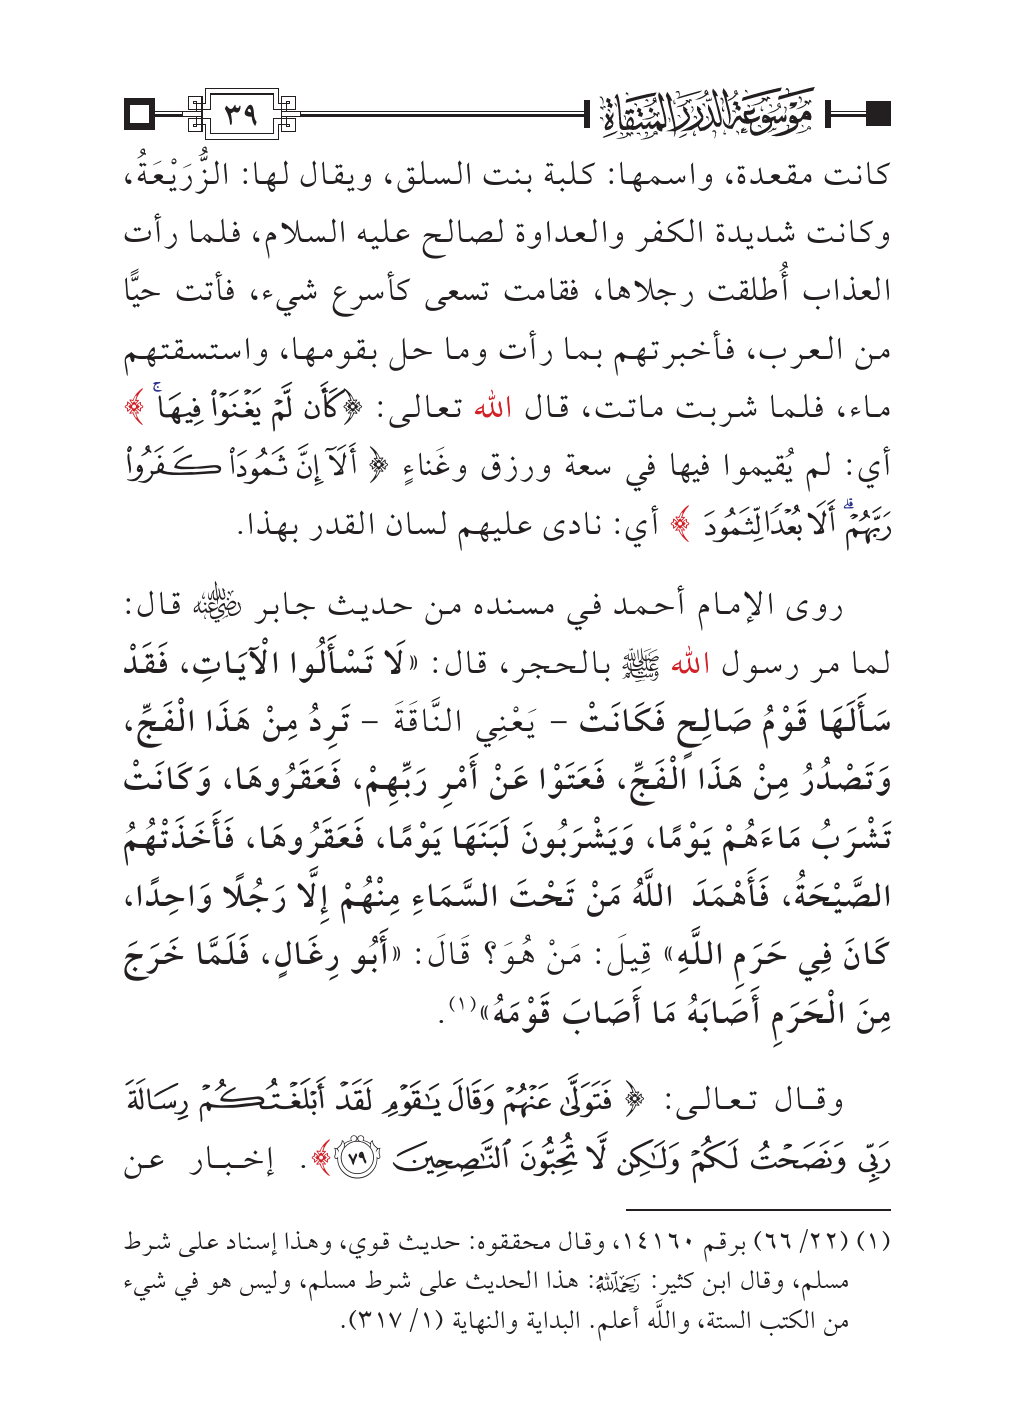 موسوعة الدرر المنتقاة ٣٩
كانت مقعدة، واسمها: كلبة بنت السلق، ويقال لها: الزُّرَيْعَةُ،
وكانت شديدة الكفر والعداوة لصالح عليه السلام، فلما رأت
العذاب أُطلقت رجلاها، فقامت تسعى كأسرع شيء، فأتت حيًّا
من العرب، فأخبرتهم بما رأت وما حل بقومها، واستسقتهم
ماء، فلما شربت ماتت، قال الله تعالى: ﴿كَأَن لَّمْ يَغْنَوْا۟ فِيهَآ ۚ﴾
أي: لم يُقيموا فيها في سعة ورزق وغَناءٍ ﴿أَلَآ إِنَّ ثَمُودَا۟ كَفَرُوا۟
رَبَّهُمْ ۗ أَلَا بُعْدًا لِّثَمُودَ﴾ أي: نادى عليهم لسان القدر بهذا.
روى الإمام أحمد في مسنده من حديث جابر رضي الله عنه قال:
لما مر رسول الله ﷺ بالحجر، قال: «لَا تَسْأَلُوا الْآيَاتِ، فَقَدْ
سَأَلَهَا قَوْمُ صَالِحٍ فَكَانَتْ – يَعْنِي النَّاقَةَ – تَرِدُ مِنْ هَذَا الْفَجِّ،
وَتَصْدُرُ مِنْ هَذَا الْفَجِّ، فَعَتَوْا عَنْ أَمْرِ رَبِّهِمْ، فَعَقَرُوهَا، وَكَانَتْ
تَشْرَبُ مَاءَهُمْ يَوْمًا، وَيَشْرَبُونَ لَبَنَهَا يَوْمًا، فَعَقَرُوهَا، فَأَخَذَتْهُمُ
الصَّيْحَةُ، فَأَهْمَدَ اللَّهُ مَنْ تَحْتَ السَّمَاءِ مِنْهُمْ إِلَّا رَجُلًا وَاحِدًا،
كَانَ فِي حَرَمِ اللَّهِ» قِيلَ: مَنْ هُوَ؟ قَالَ: «أَبُو رِغَالٍ، فَلَمَّا خَرَجَ
مِنَ الْحَرَمِ أَصَابَهُ مَا أَصَابَ قَوْمَهُ»(١).
وقال تعالى: ﴿فَتَوَلَّىٰ عَنْهُمْ وَقَالَ يَـٰقَوْمِ لَقَدْ أَبْلَغْتُكُمْ رِسَالَةَ
رَبِّى وَنَصَحْتُ لَكُمْ وَلَـٰكِن لَّا تُحِبُّونَ ٱلنَّـٰصِحِينَ ٧٩﴾. إخبار عن
(١) (٢٢/ ٦٦) برقم ١٤١٦٠، وقال محققوه: حديث قوي، وهذا إسناد على شرط
مسلم، وقال ابن كثير: رحمه الله: هذا الحديث على شرط مسلم، وليس هو في شيء
من الكتب الستة، واللَّه أعلم. البداية والنهاية (١/ ٣١٧).